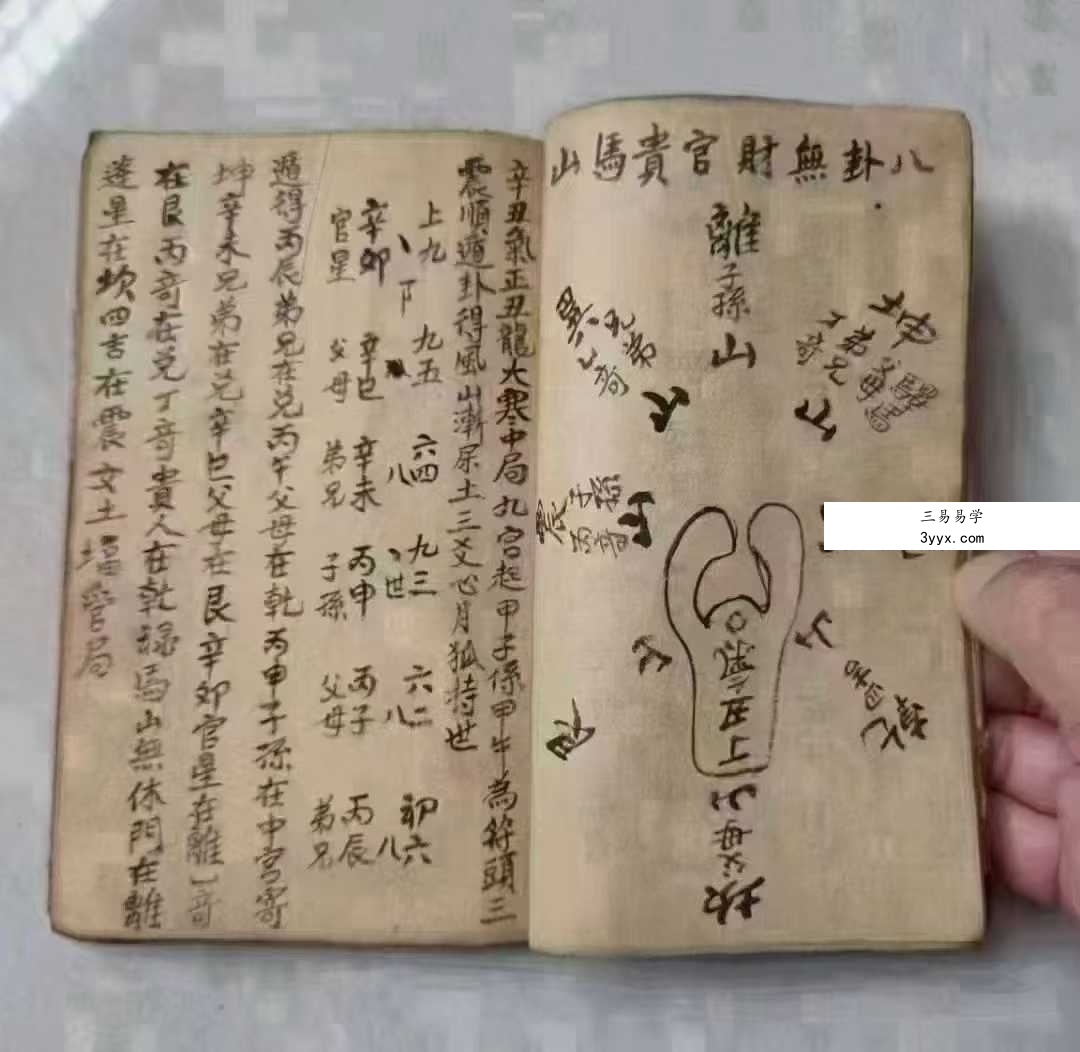 八卦無財官貴馬山
離
子孫
山
坤
父母
弟兄
丁奇
驛馬
巽
兄弟
乙奇
震
子孫
丙奇
艮
乾
丁丑氣
山
父母
坎
三易易学
3yyx.com
辛丑氣正丑龍大寒中局九宮起甲子係甲午為符頭三
震順遁卦得風山漸屎土三爻心月狐持世
上九 九五 六四 九三 六二 初六
辛卯 辛巳 辛未 丙申 丙子 丙辰
官星 父母 弟兄 子孫 父母 弟兄
世
遁得丙辰弟兄在兑丙午父母在乾丙申子孫在中宮寄
坤辛未兄弟在兑辛巳父母在艮辛卯官星在離乙奇
在艮丙奇在兑丁奇貴人在乾祿馬山無休門在離
蓬星在坎四吉在震